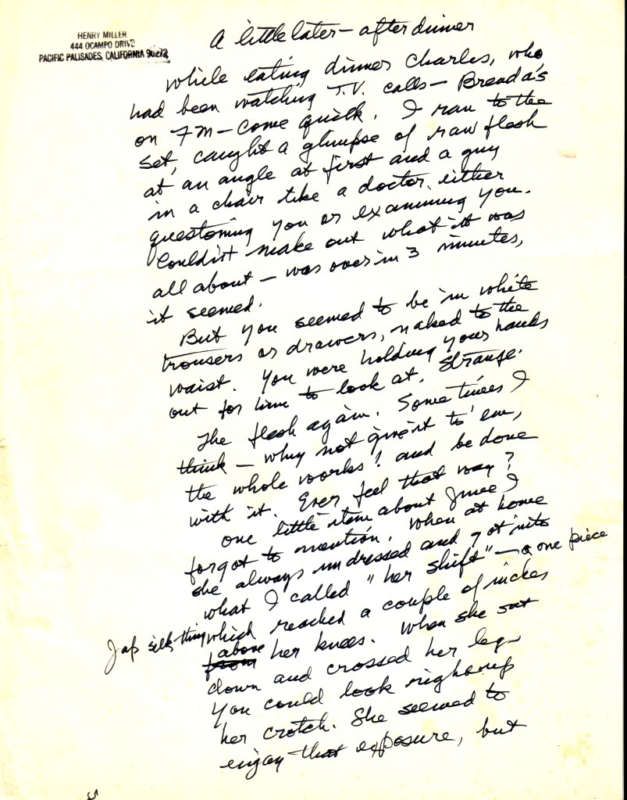 HENRY MILLER
444 OCAMPO DRIVE
PACIFIC PALISADES, CALIFORNIA 90272
A little later – after dinner
While eating dinner Charles, who
had been watching T.V. calls – Brenda's
on 7M – Come quick. I ran to the
set, caught a glimpse of raw flesh
at an angle at first and a guy
in a chair like a doctor either
questioning you or examining you.
Couldn't make out what it was
all about – was over in 3 minutes,
it seemed.
But you seemed to be in white
trousers or drawers, naked to the
waist. You were holding your hands
out for him to look at. Strange.
The flesh again. Sometimes I
think – why not give it to 'em,
the whole works! and be done
with it. Ever feel that way?
One little item about June I
forgot to mention. When at home
she always undressed and got into
what I called "her shift" – a one piece
Jap silk thing which reached a couple of inches
above her knees. When she sat
down and crossed her legs
you could look right up
her crotch. She seemed to
enjoy that exposure, but